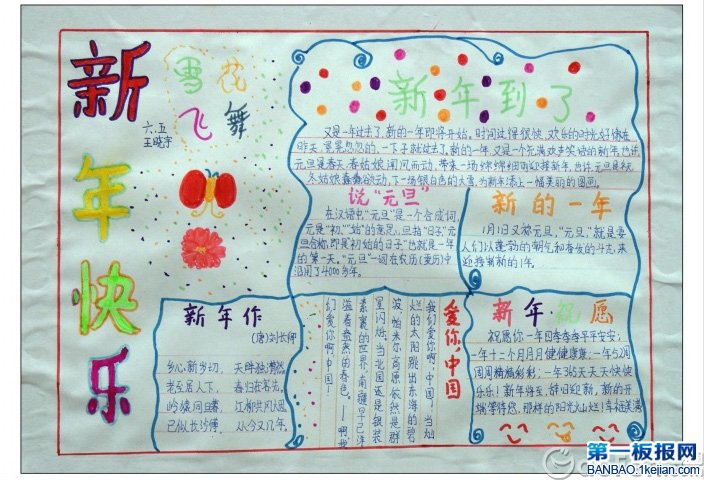 新年快乐
雪花
飞舞
六.五
王晓宇
新年到了
又是一年过去了,新的一年即将开始。时间过得很快,欢乐的时光好像在
昨天,晃晃忽忽的,一下子就过去了。新的一年,又是一个充满欢声笑语的新年,也许
元旦是春天,春姑娘闻风而动,带来一场绵绵细雨迎接新年,也许元旦是
冬姑娘蠢蠢欲动,下一场银白色的大雪,为新年添上一幅美丽的图画。
说“元旦”
在汉语中,“元旦”是一个合成词,
元是“初”、“始”的意思,旦指“日子”元
旦合称,即是“初始的日子”也就是一年
的第一天。“元旦”一词在农历(夏历)中
沿用了4000多年。
新的一年
1月1日又称元旦,“元旦”就是要
人们以蓬勃的朝气和奋发的斗志,来
迎接崭新的1年。
新年作
(唐)刘长卿
乡心新岁切, 天畔独潸然。
老至居人下, 春归在客先。
岭猿同旦暮, 江柳共风烟。
已似长沙傅, 从今又几年。
爱你,中国
我们爱你啊,中国!当灿
烂的太阳跳出东海的碧
波,帕米尔高原依然是群
星闪烁。当北国还是银装
素裹的世界,南疆早已洋
溢着盎然的春色。——啊我
们爱你啊中国!
新年祝愿
祝愿你一年四季季季平平安安;
一年十二个月月月健健康康;一年52周
周周精精彩彩;一年365天天天快快
乐乐!新年将至,辞旧迎新,新的开
端等待您,那样的阳光灿烂!幸福美满
第一板报网
BANBAO.1kejian.com